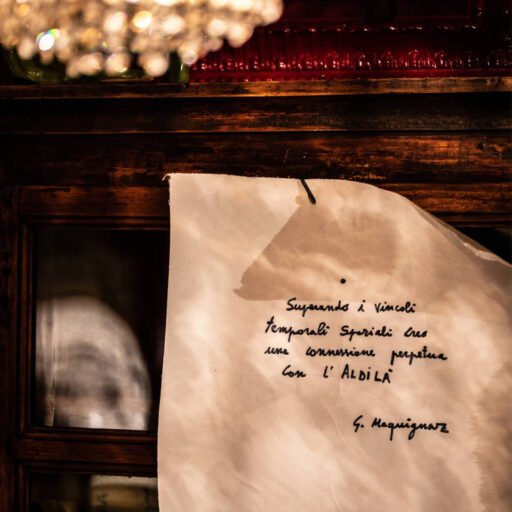 Superando i vincoli
temporali spaziali creo
una connessione perpetua
Con l' ALDILÀ
G. Maquignaz